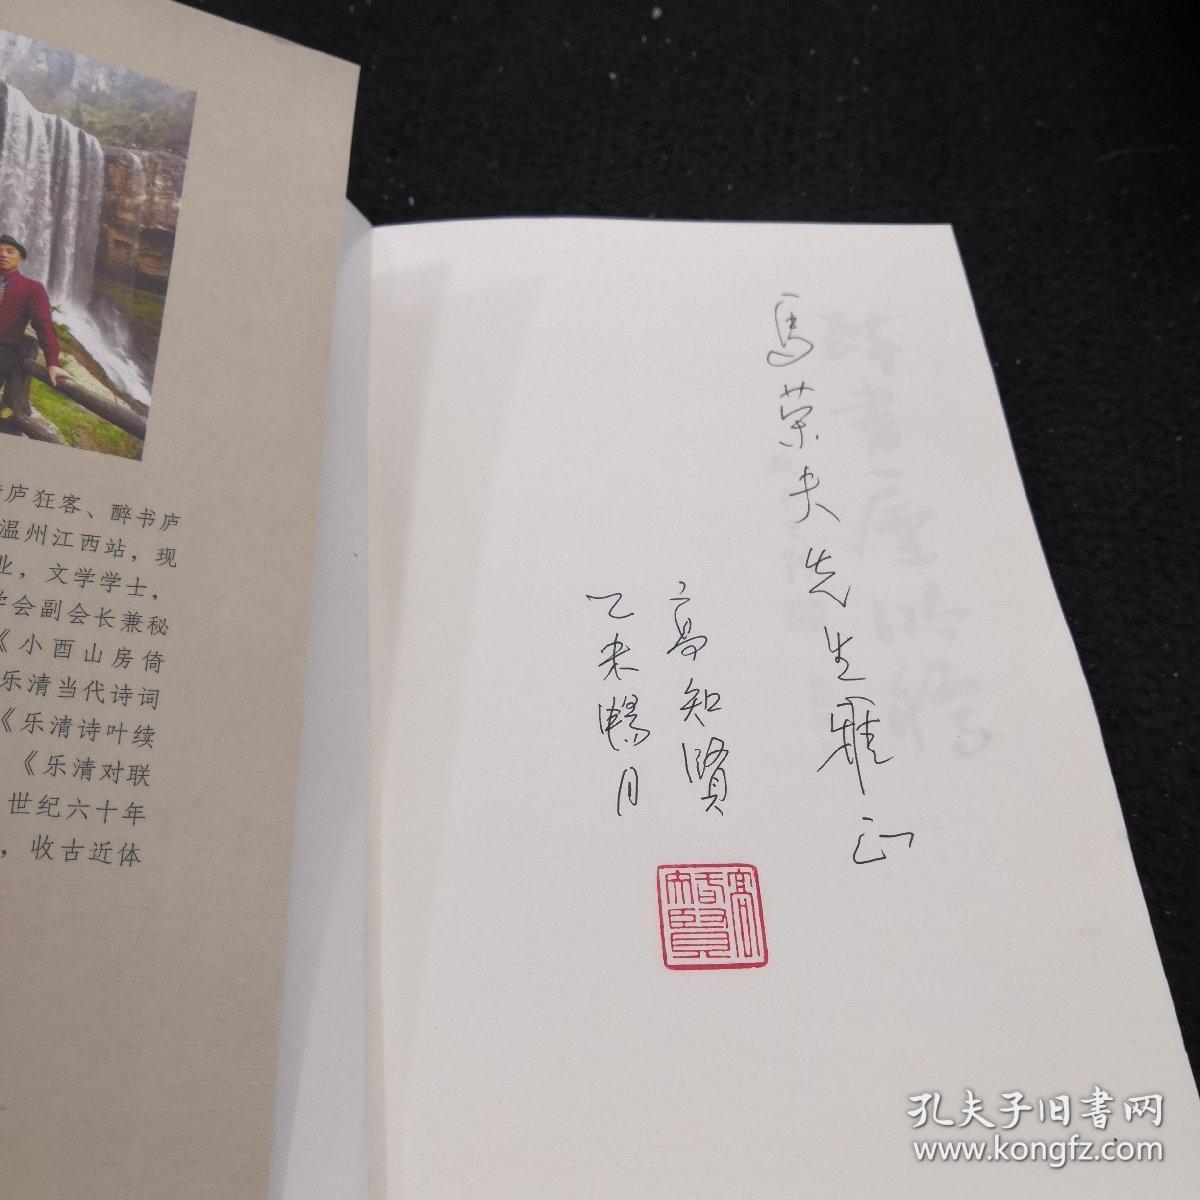 庐狂客、醉书庐
温州江西站，现
业，文学学士，
学会副会长兼秘
《小酉山房倚
乐清当代诗词
《乐清诗叶续
《乐清对联
世纪六十年
，收古近体
馬荣夫先生雅正
高知賢
乙未暢月
孔夫子旧書网
www.kongfz.com